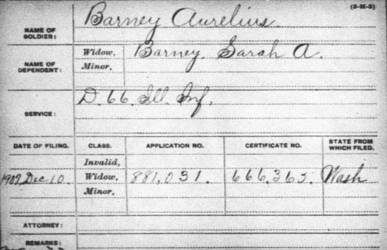 (3-315)
NAME OF SOLDIER: Barney Aurelius
NAME OF DEPENDENT: Widow, Barney, Sarah A.
Minor,
SERVICE: D. 66. Ill. Inf.
DATE OF FILING. CLASS. APPLICATION NO. CERTIFICATE NO. STATE FROM WHICH FILED.
Invalid,
1907 Dec 10. Widow, 881,031. 666,365. Wash
Minor,
ATTORNEY:
REMARKS: